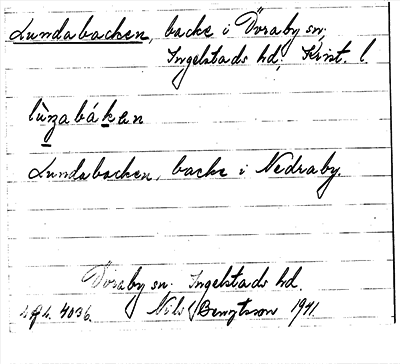 Lundabacken, backe i Övraby sn,
Ingelstads hd, Krist. l.
lùnabákan
Lundabacken, backe i Nedraby.
Övraby sn. Ingelstads hd.
Nils Bengtsson 1941.
4036.